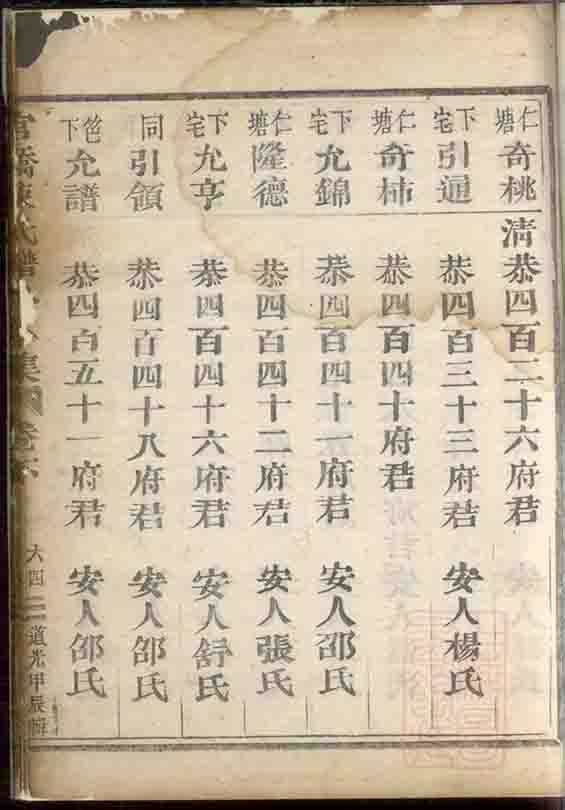 仁塘 奇桃 清恭四百二十六府君
下宅 引通 恭四百三十三府君 安人楊氏
仁塘 奇柿 恭四百四十府君
下宅 允錦 恭四百四十一府君 安人邵氏
仁塘 隆德 恭四百四十二府君 安人張氏
下宅 允亨 恭四百四十六府君 安人舒氏
同 引領 恭四百四十八府君 安人邵氏
笆下 允譜 恭四百五十一府君 安人邵氏
官橋陳氏譜 集 卷 六四 道光甲辰輯